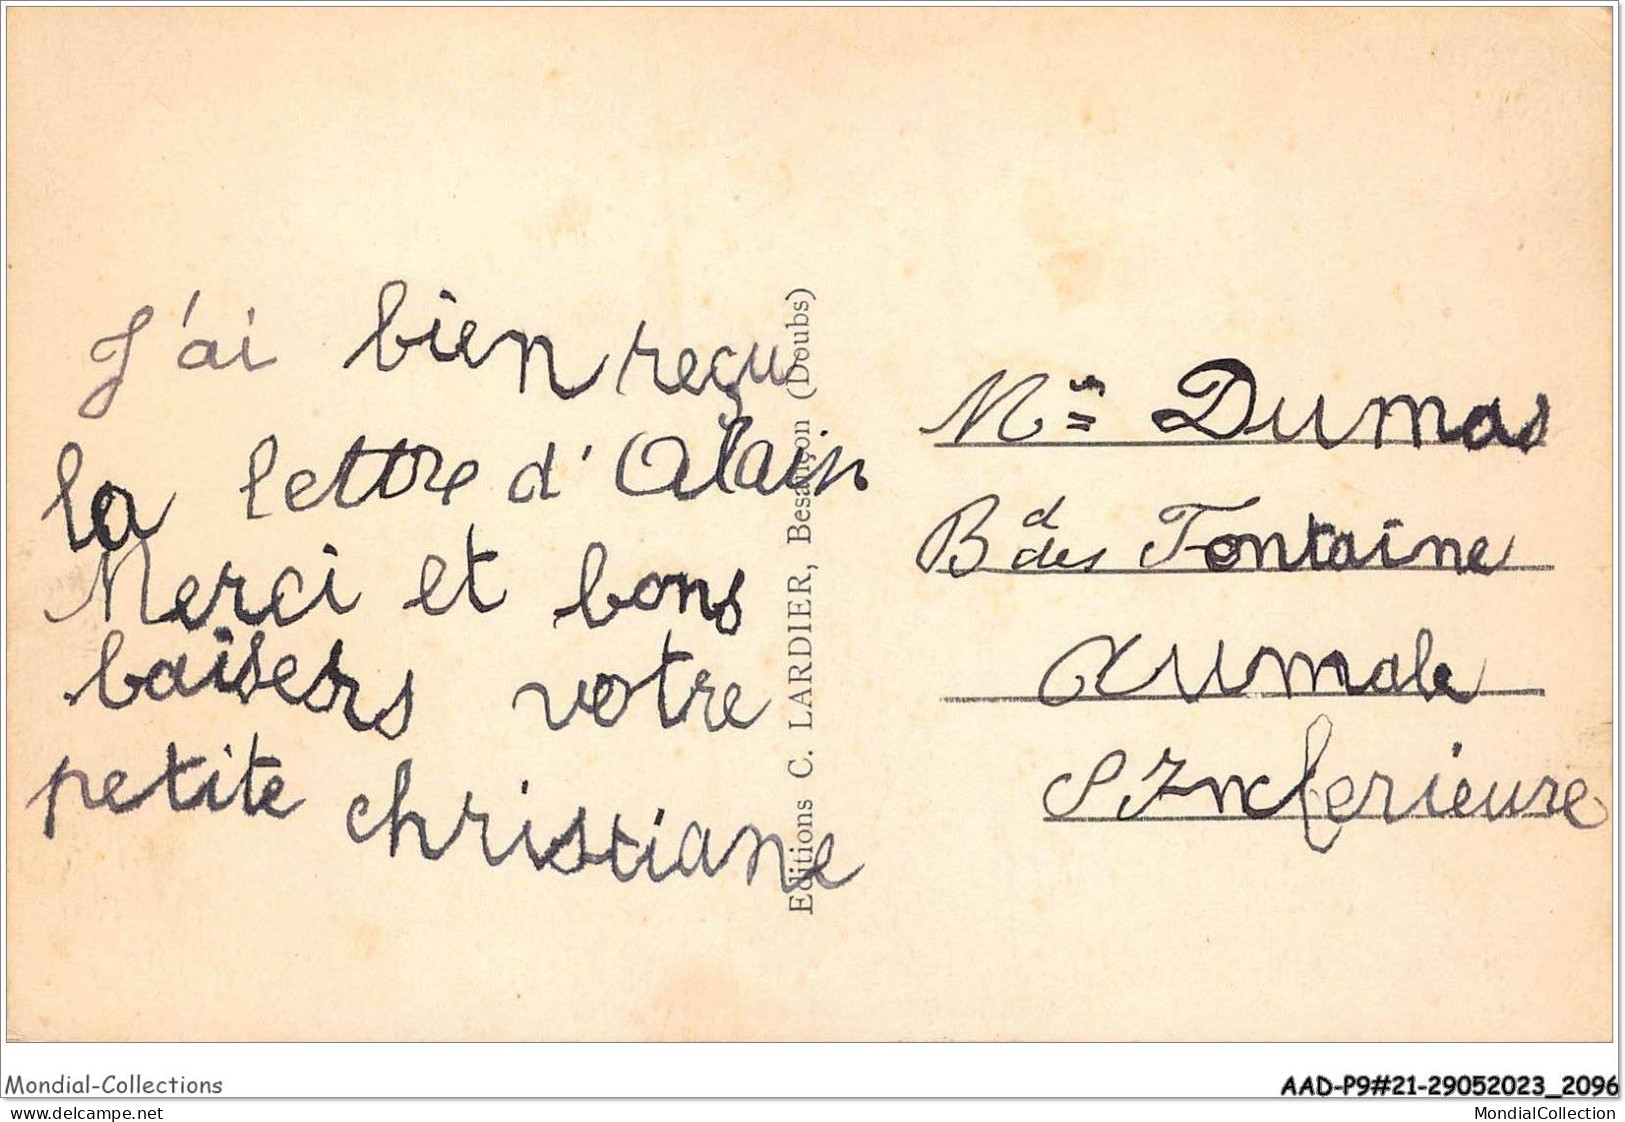 J'ai bien reçu
la lettre d'Alain
Merci et bons
baisers votre
petite christiane
Editions C. LARDIER, Besançon (Doubs)
Dumas
Bd des Fontaine
Aumale
S Inferieure
Mondial-Collections
AAD-P9#21-29052023_2096
delcampe.net
MondialCollection